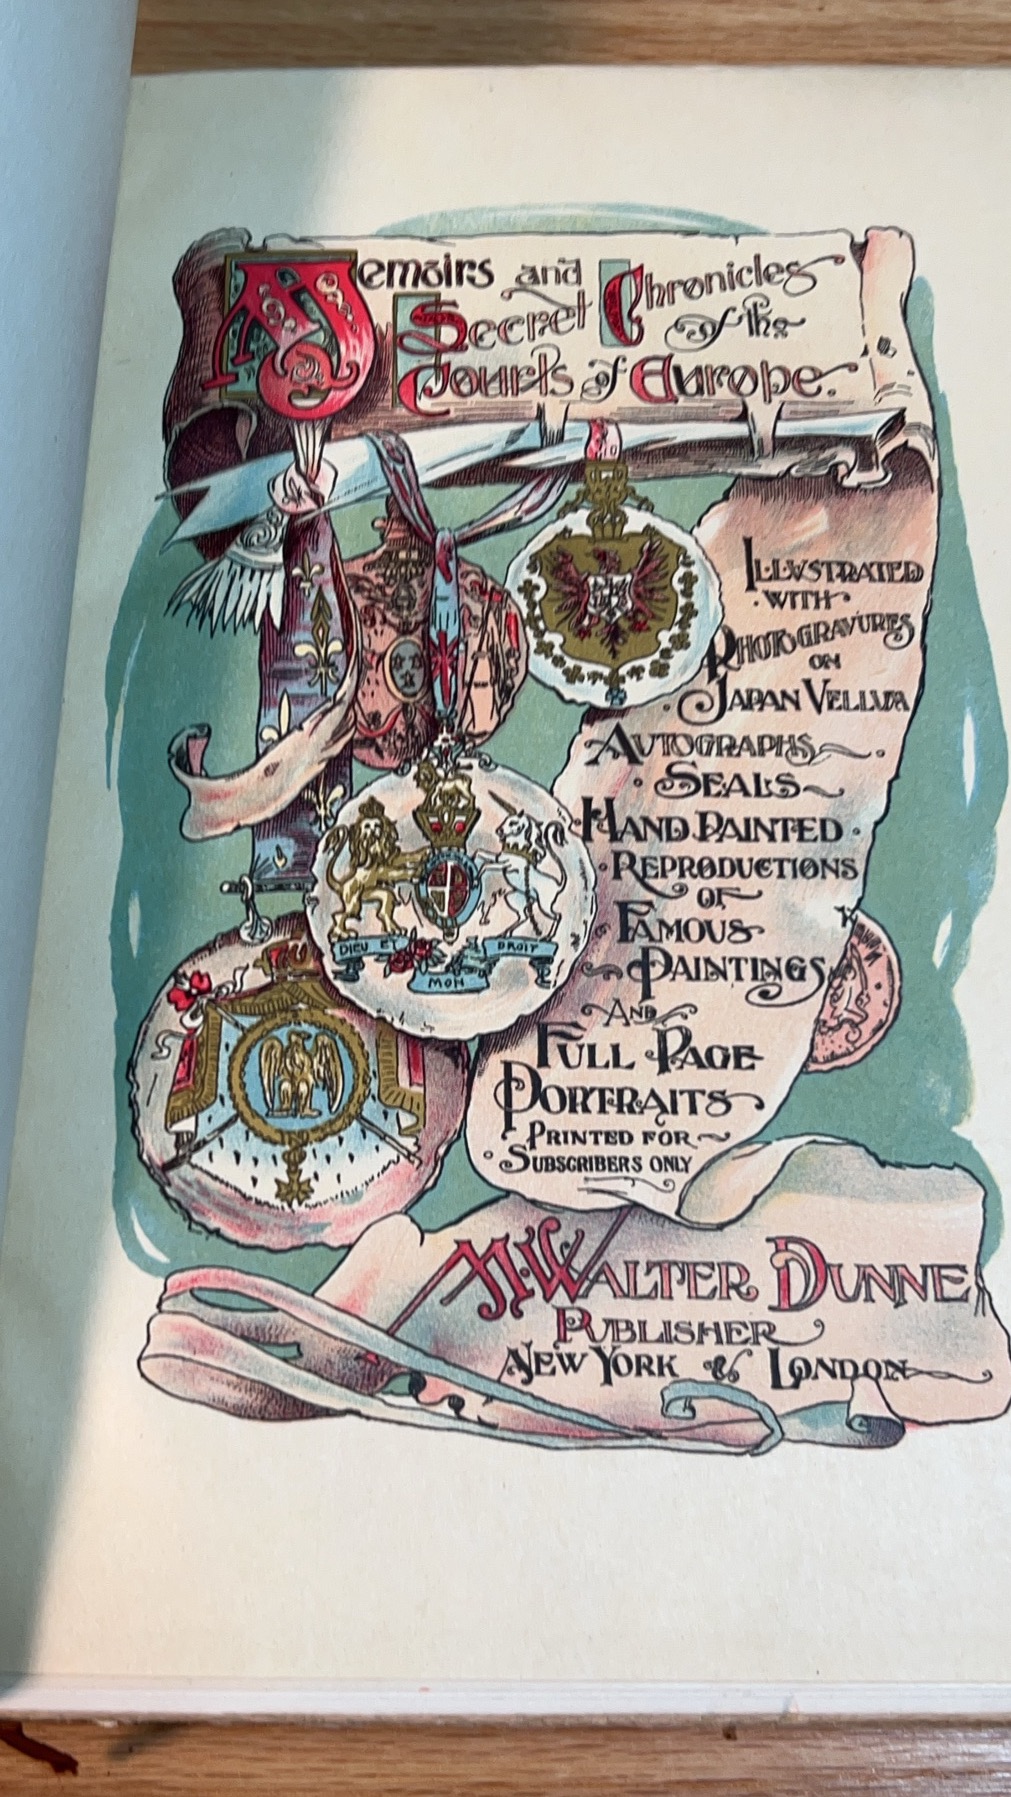 Memoirs and
Secret Chronicles
of the
Courts of Europe.
ILLVSTRATED
·WITH·
PHOTOGRAVURES
ON
·JAPAN VELLUM
AUTOGRAPHS·
·SEALS
·HAND PAINTED·
·REPRODUCTIONS
OF
FAMOUS
PAINTINGS
AND
FULL PAGE
PORTRAITS
PRINTED FOR
·SUBSCRIBERS ONLY
DIEU ET
MON
DROIT
M·WALTER DUNNE
PUBLISHER
NEW YORK & LONDON